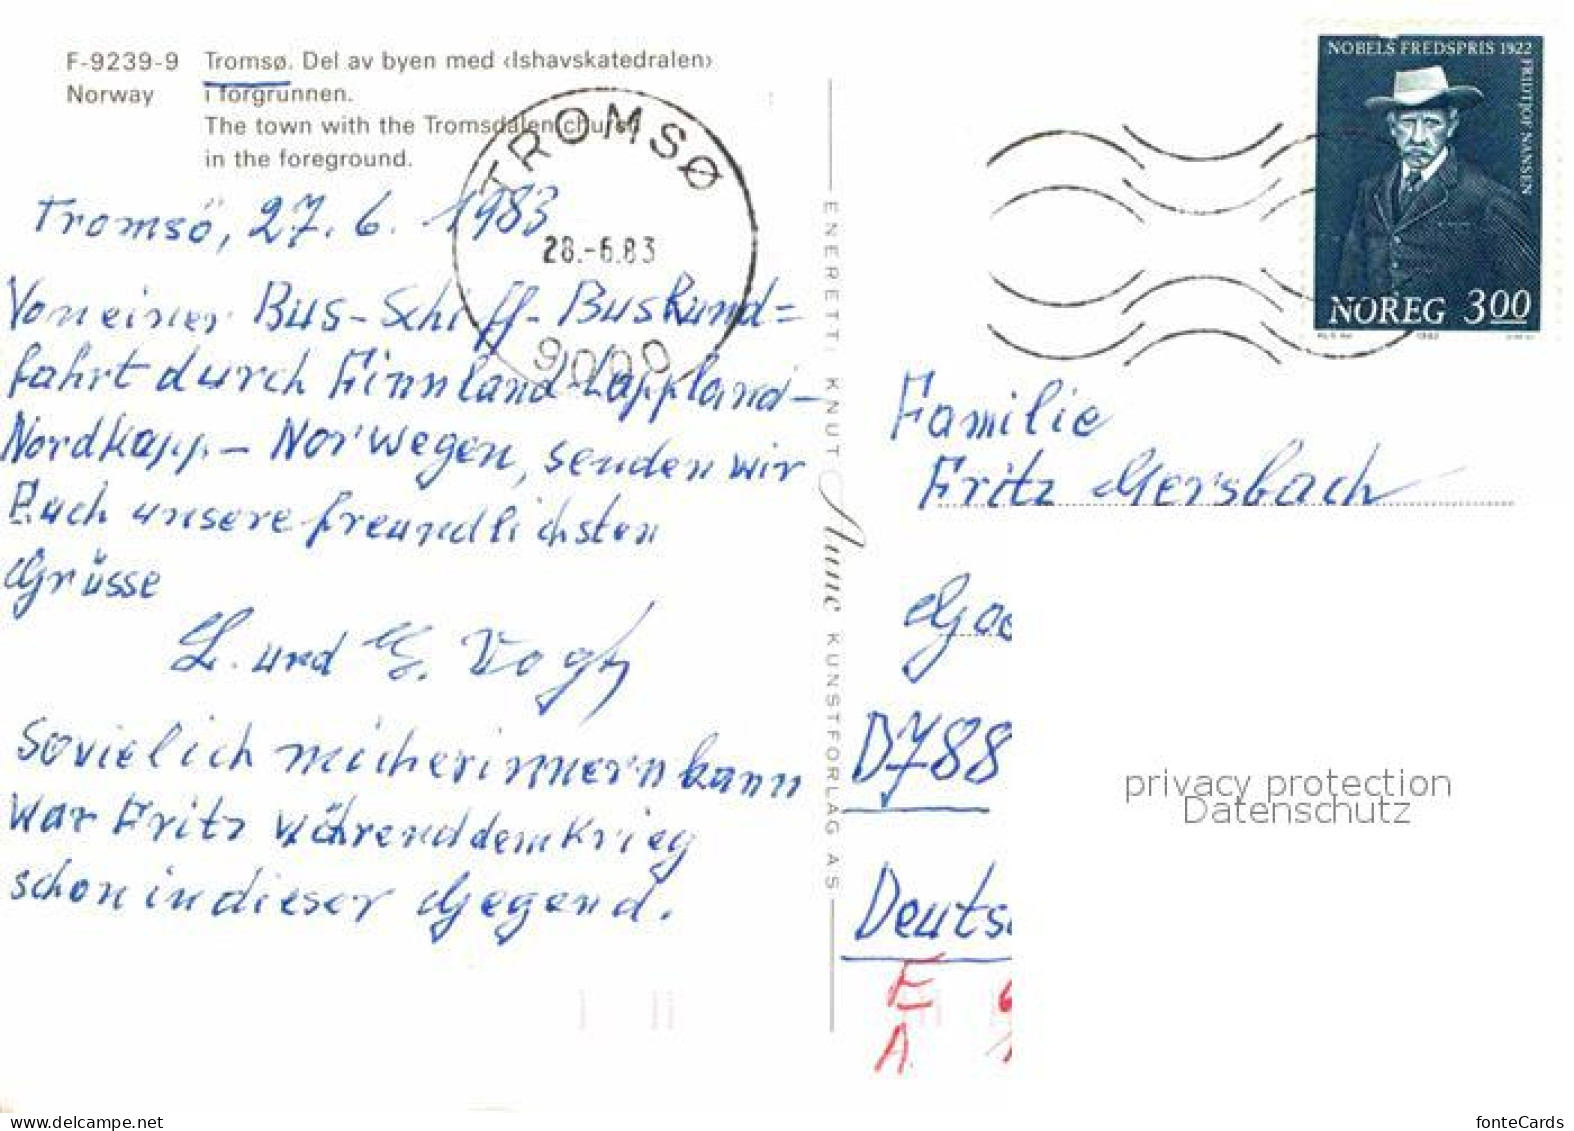 F-9239-9 Tromsø. Del av byen med ‹Ishavskatedralen›
Norway i forgrunnen.
The town with the Tromsdalen church
in the foreground.
Tromsö, 27.6.1983
Von einer Bus-Schiff-Bus Rund=
fahrt durch Finnland-Lappland-
Nordkapp-Norwegen, senden wir
Euch unsere freundlichsten
Grüsse
L. und G. Vogt
Soviel ich mich erinnern kann
war Fritz während dem Krieg
schon in dieser Gegend.
TROMSØ
28.-6.83
9000
ENERETT: KNUT Aune KUNSTFORLAG AS
NOBELS FREDSPRIS 1922
FRIDTJOF NANSEN
NOREG 300
1982
Familie
Fritz Mersbach
D 788
Deuts
E
A
privacy protection
Datenschutz
www.delcampe.net
fonteCards